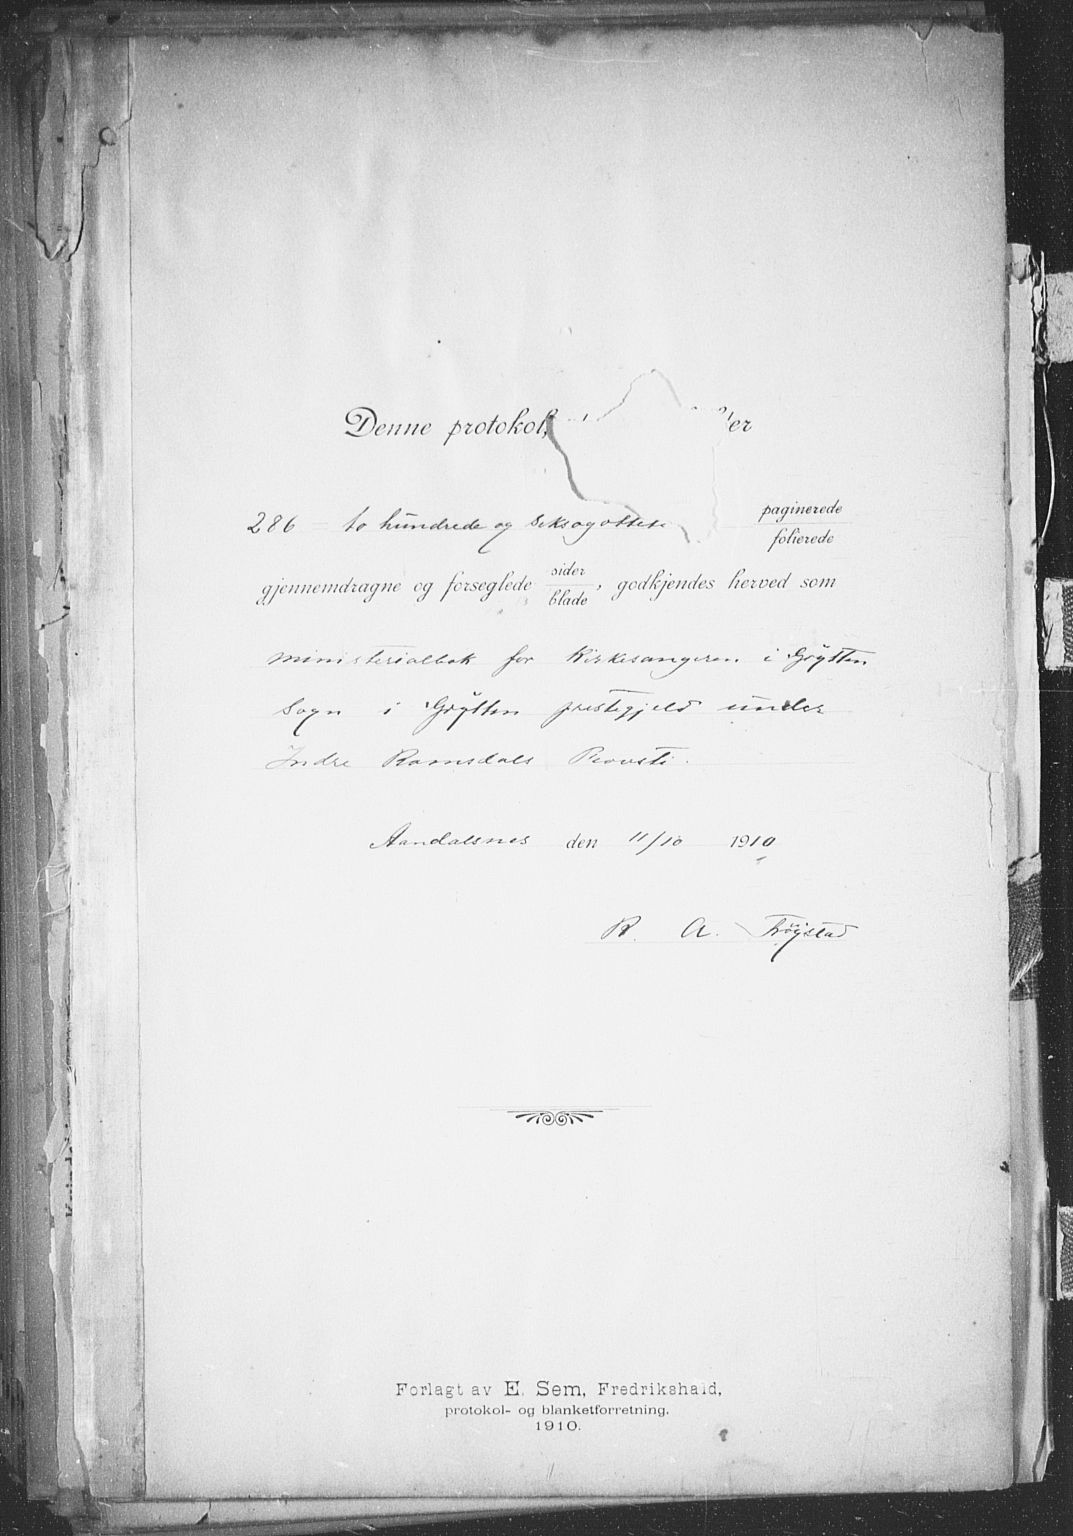 Denne protokol,
286 to hundrede og seksogotteti paginerede
folierede
gjennemdragne og forseglede sider
blade, godkjendes herved som
ministerialbok for Kirkesangeren i Grÿtten
Sogn i Grÿtten prestegjeld under
Indre Romsdals Provsti.
Aandalsnes den 11/10 1910
R. A. Frøÿstad
Forlagt av E. Sem, Fredrikshald,
protokol- og blanketforretning.
1910.